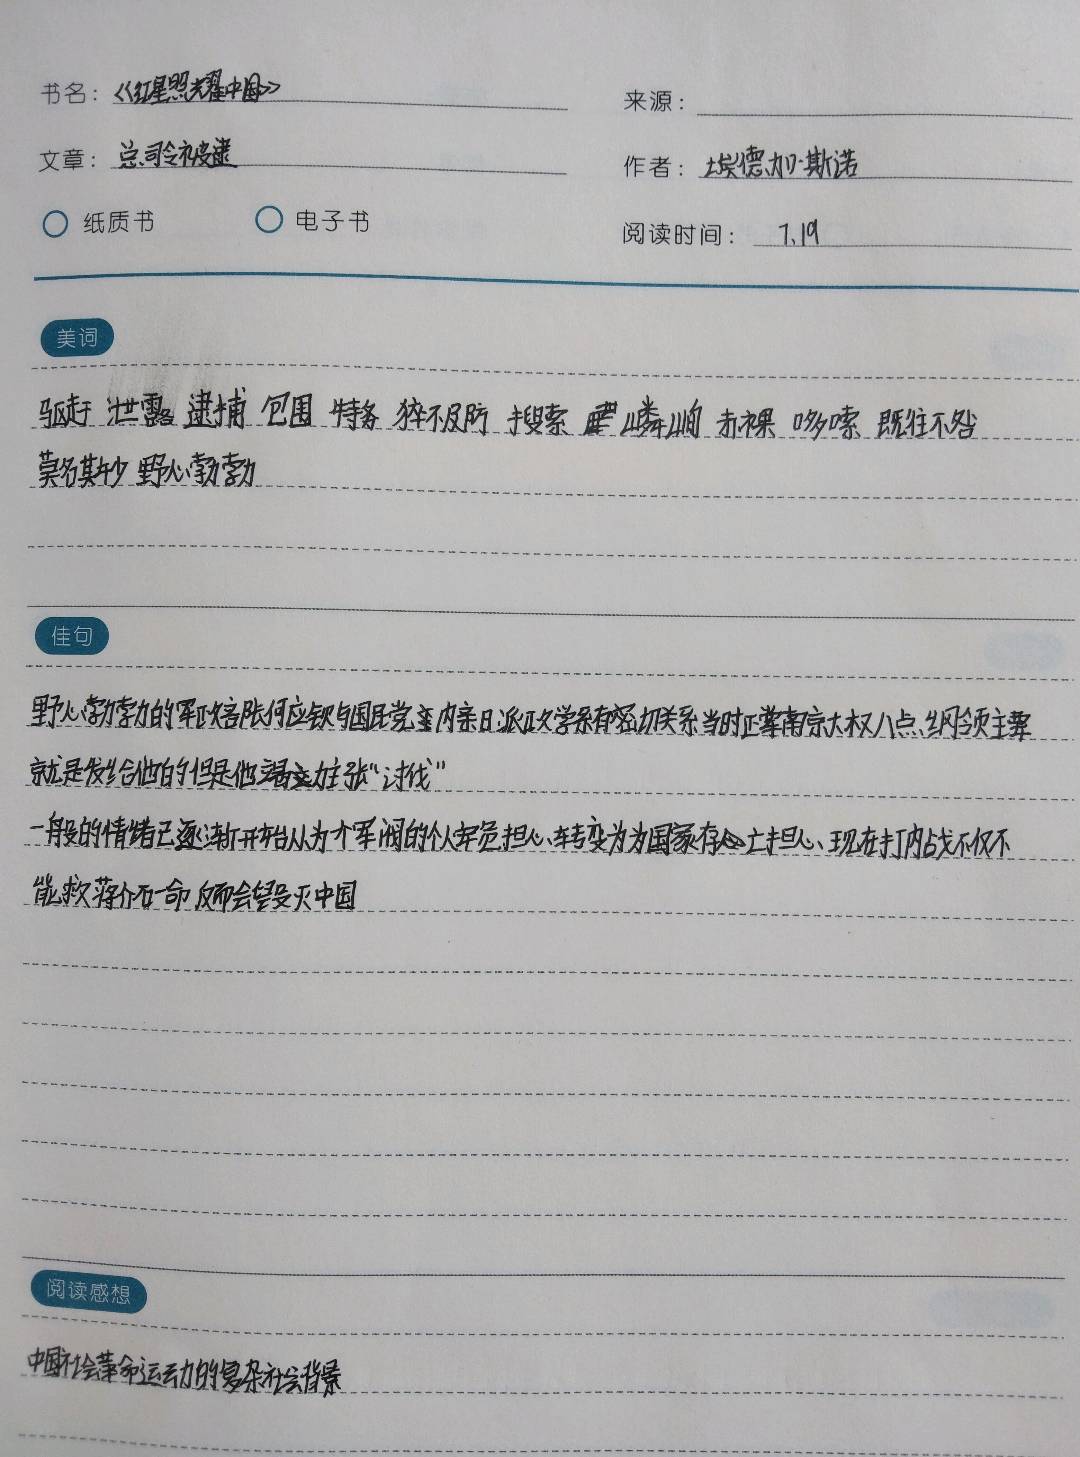 书名：《红星照耀中国》
来源：
文章：总司令被逮
作者：埃德加·斯诺
纸质书 电子书
阅读时间：7.19
美词
驱赶 泄露 逮捕 包围 特务 猝不及防 搜索 嶙峋 赤裸 哆嗦 既往不咎
莫名其妙 野心勃勃
佳句
野心勃勃的军政部长何应钦与国民党内亲日派政学系有密切关系当时正掌南京大权八点纲领主要
就是发给他的但是他竭力主张“讨伐”
一般的情绪已逐渐开始从为个军阀的个人安危担心转变为为国家存亡担心、现在打内战不仅不
能救蒋介石一命 反而会毁灭中国
阅读感想
中国社会革命运动的复杂社会背景